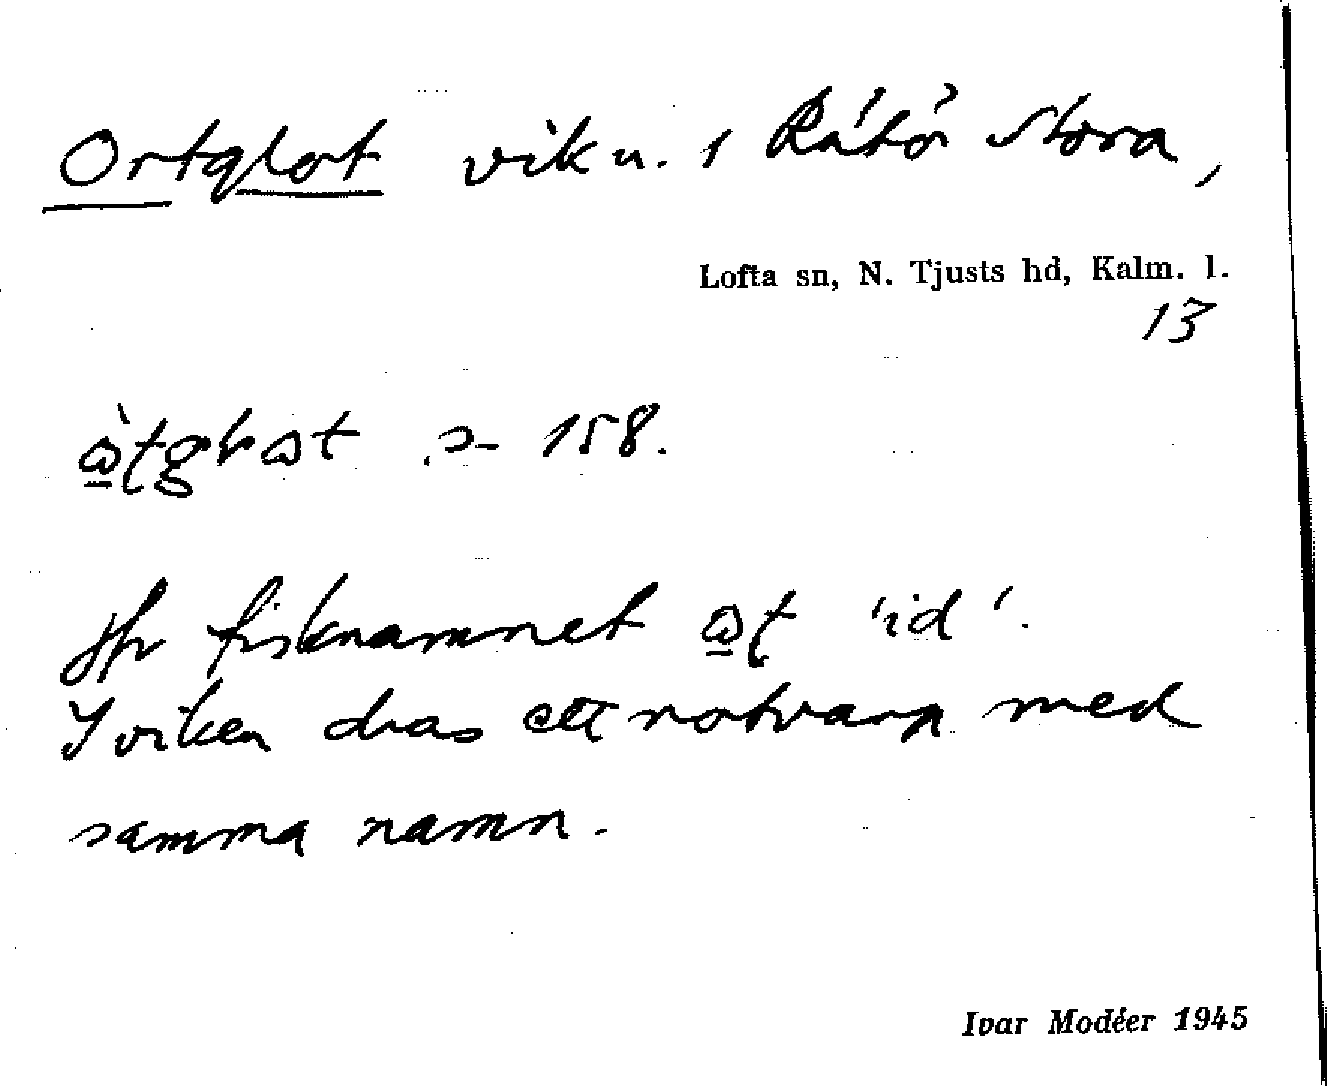 Ortglot vik u. i Råtö Stora,
Lofta sn, N. Tjusts hd, Kalm. l.
13
158.
Jfr fisknamnet 'id'.
I viken dras ett notvarp med
samma namn.
Ivar Modéer 1945